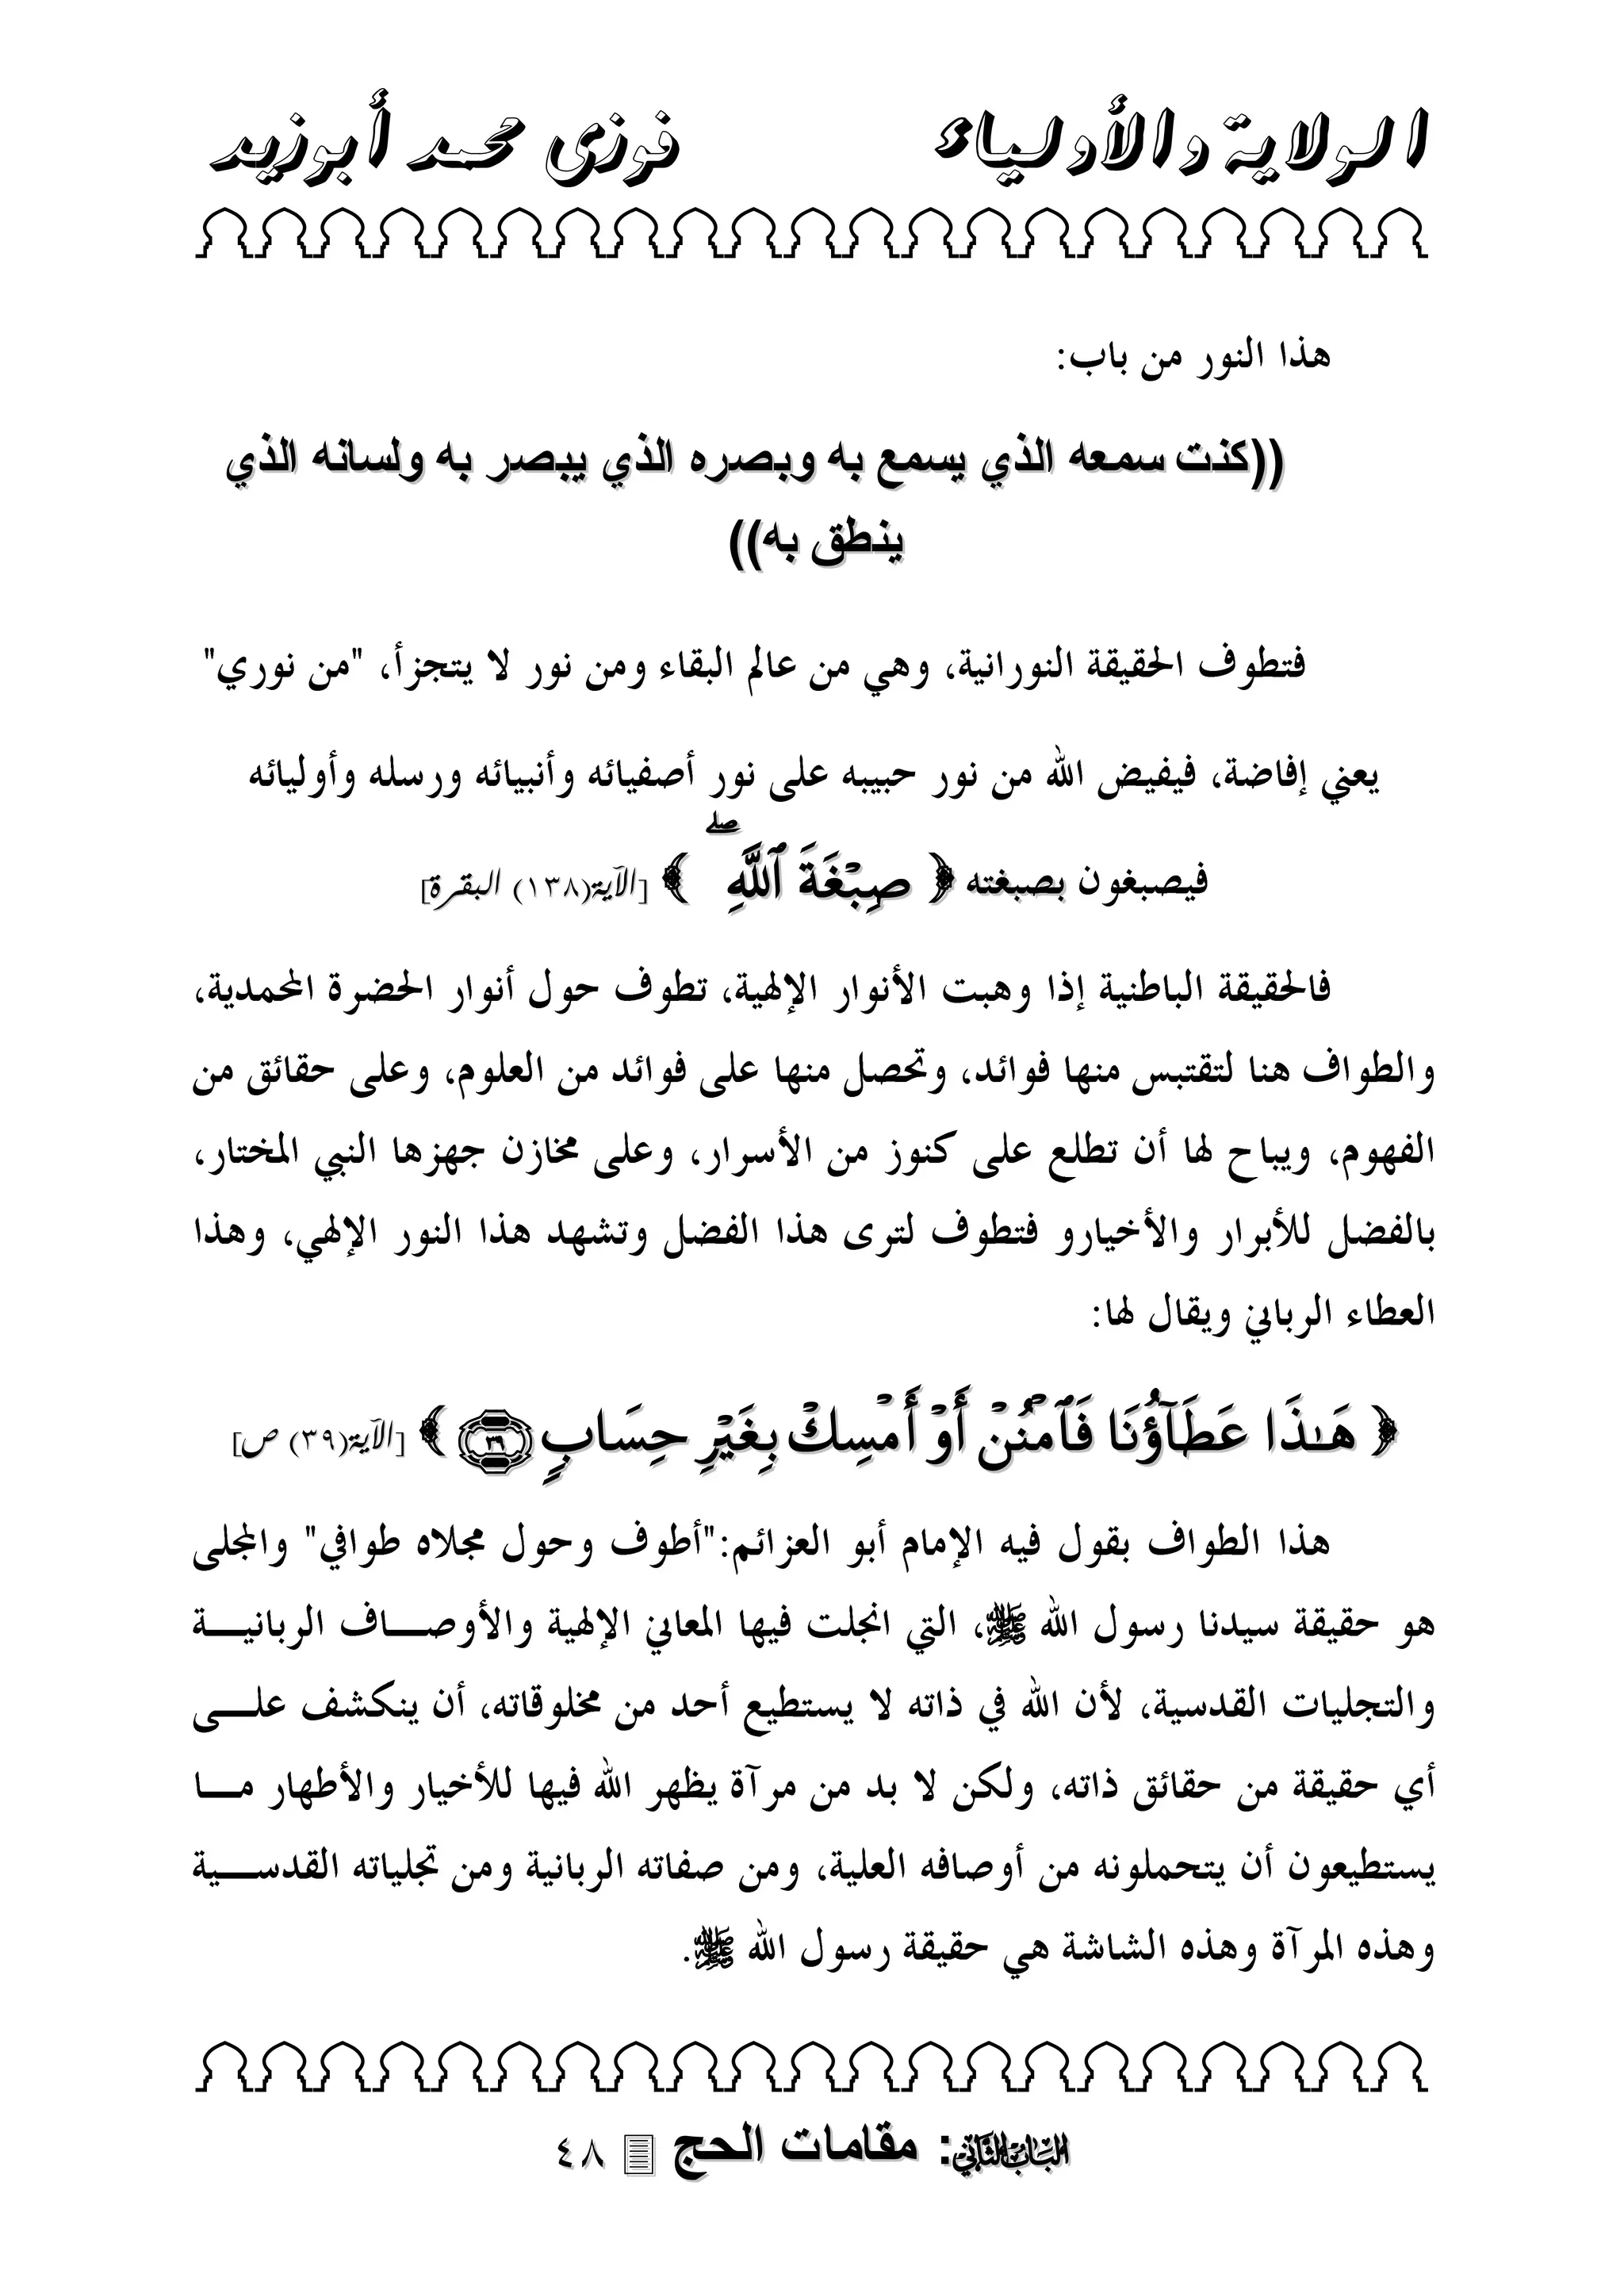 الولاية والأولياء فوزى محمد أبوزيد
هذا النور من باب:
((كنت سمعه الذي يسمع به وبصره الذي يبصر به ولسانه الذي
ينطق به))
فتطوف الحقيقة النورانية، وهي من عالم البقاء ومن نور لا يتجزأ، "من نوري"
يعني إفاضة، فيفيض الله من نور حبيبه على نور أصفيائه وأنبيائه ورسله وأوليائه
فيصبغون بصبغته ﴿ صِبْغَةَ ٱللَّهِ ۖ ﴾ [الآية(١٣٨) البقرة]
فالحقيقة الباطنية إذا وهبت الأنوار الإلهية، تطوف حول أنوار الحضرة المحمدية،
والطواف هنا لتقتبس منها فوائد، وتحصل منها على فوائد من العلوم، وعلى حقائق من
الفهوم، ويباح لها أن تطلع على كنوز من الأسرار، وعلى مخازن جهزها النبي المختار،
بالفضل للأبرار والأخيارو فتطوف لترى هذا الفضل وتشهد هذا النور الإلهي، وهذا
العطاء الرباني ويقال لها:
﴿ هَـٰذَا عَطَآؤُنَا فَٱمْنُنْ أَوْ أَمْسِكْ بِغَيْرِ حِسَابٍ ٣٩ ﴾ [الآية(٣٩) ص]
هذا الطواف بقول فيه الإمام أبو العزائم:"أطوف وحول مجلاه طوافي" والمجلى
هو حقيقة سيدنا رسول الله ﷺ، التي انجلت فيها المعاني الإلهية والأوصـــاف الربانيـــة
والتجليات القدسية، لأن الله في ذاته لا يستطيع أحد من مخلوقاته، أن ينكشف علـــى
أي حقيقة من حقائق ذاته، ولكن لا بد من مرآة يظهر الله فيها للأخيار والأطهار مـــا
يستطيعون أن يتحملونه من أوصافه العلية، ومن صفاته الربانية ومن تجلياته القدســـية
وهذه المرآة وهذه الشاشة هي حقيقة رسول الله ﷺ.
الباب الثاني: مقامات الحج ٤٨